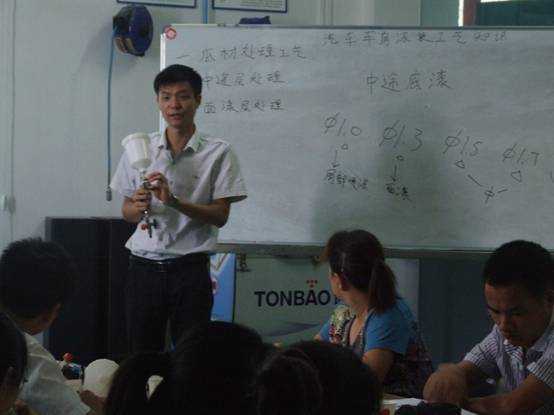 汽车车身涂装工艺知识
一 底材处理工艺
中途层处理
面漆层处理
中途底漆
φ1.0 φ1.3 φ1.5 φ1.7
局部喷漆 面漆 中
TONBAO